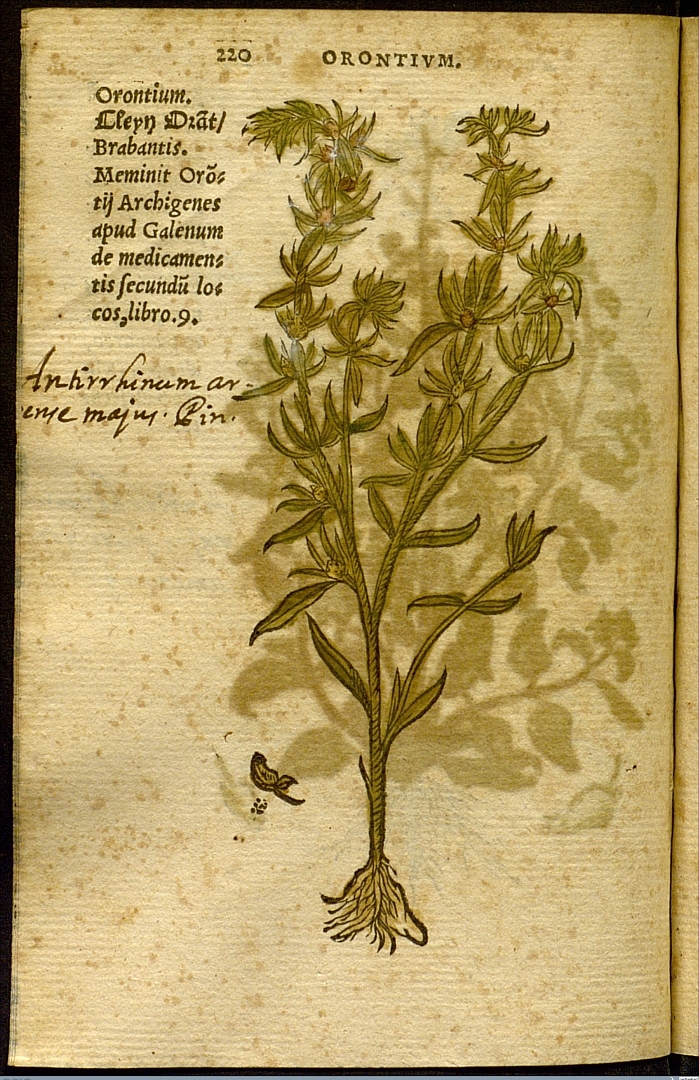 220 ORONTIVM.
Orontium.
Cleyn Orãt/
Brabantis.
Meminit Orõ⸗
tij Archigenes
apud Galenum
de medicamen⸗
tis ſecundũ lo⸗
cos, libro.9.
Antirrhinum ar-
ense majus. Pin.